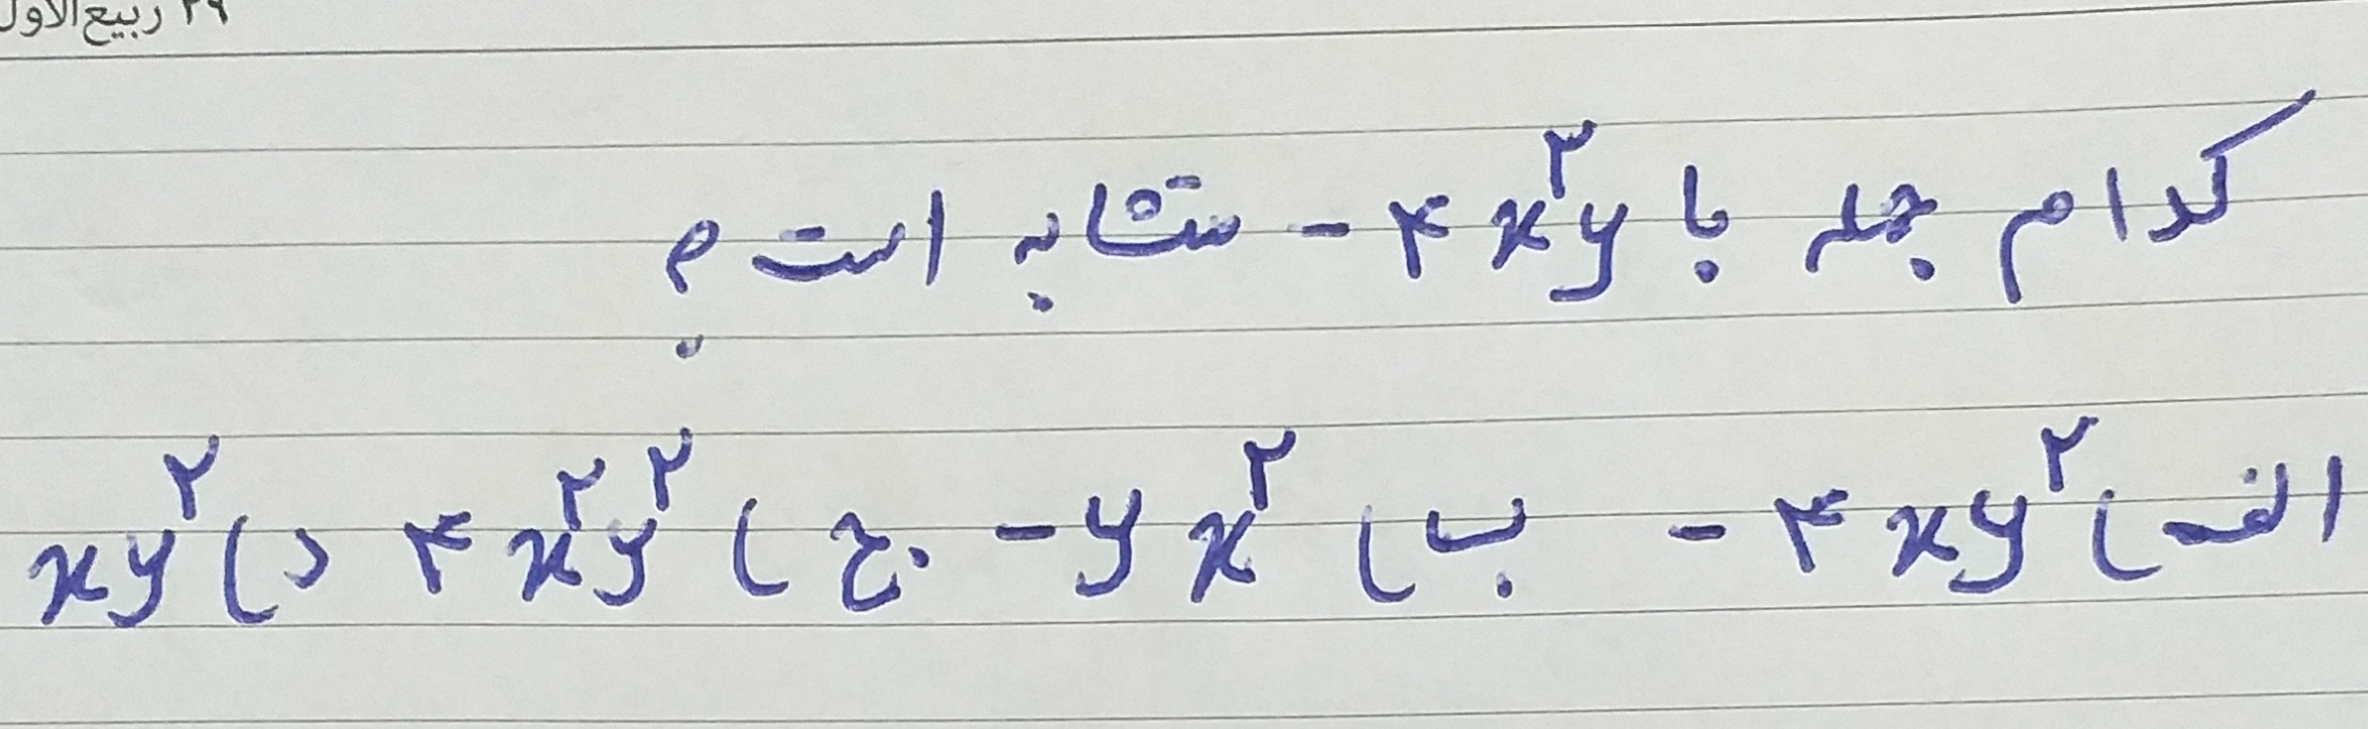 ربیع‌الاول
کدام جمله با -۴x²y متشابه است؟
الف) -۴xy² ب) -yx² ج) ۴x²y² د) xy²